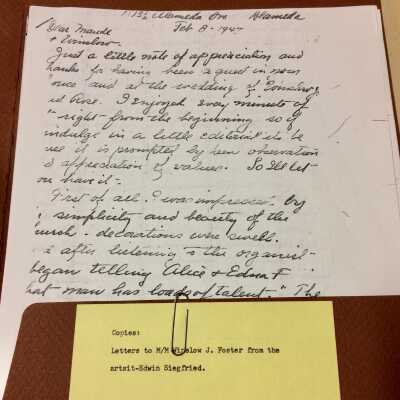 Alameda Ave Alameda
Feb 8 - 1947
Dear Maude
& Winslow -
Just a little note of appreciation and
thanks for having been a guest in
and at the wedding of
I enjoyed every minute of
right from the beginning so if
indulge in a little editorial it's be
it is prompted by keen observation
& appreciation of values. So I'll let
you have it -
First of all I was impressed by
simplicity and beauty of the
decorations were swell.
after listening to the organist -
began telling Alice & Edna F
that man has loads of talent." The
Copies:
Letters to M/M Winslow J. Foster from the
artsit-Edwin Siegfried.